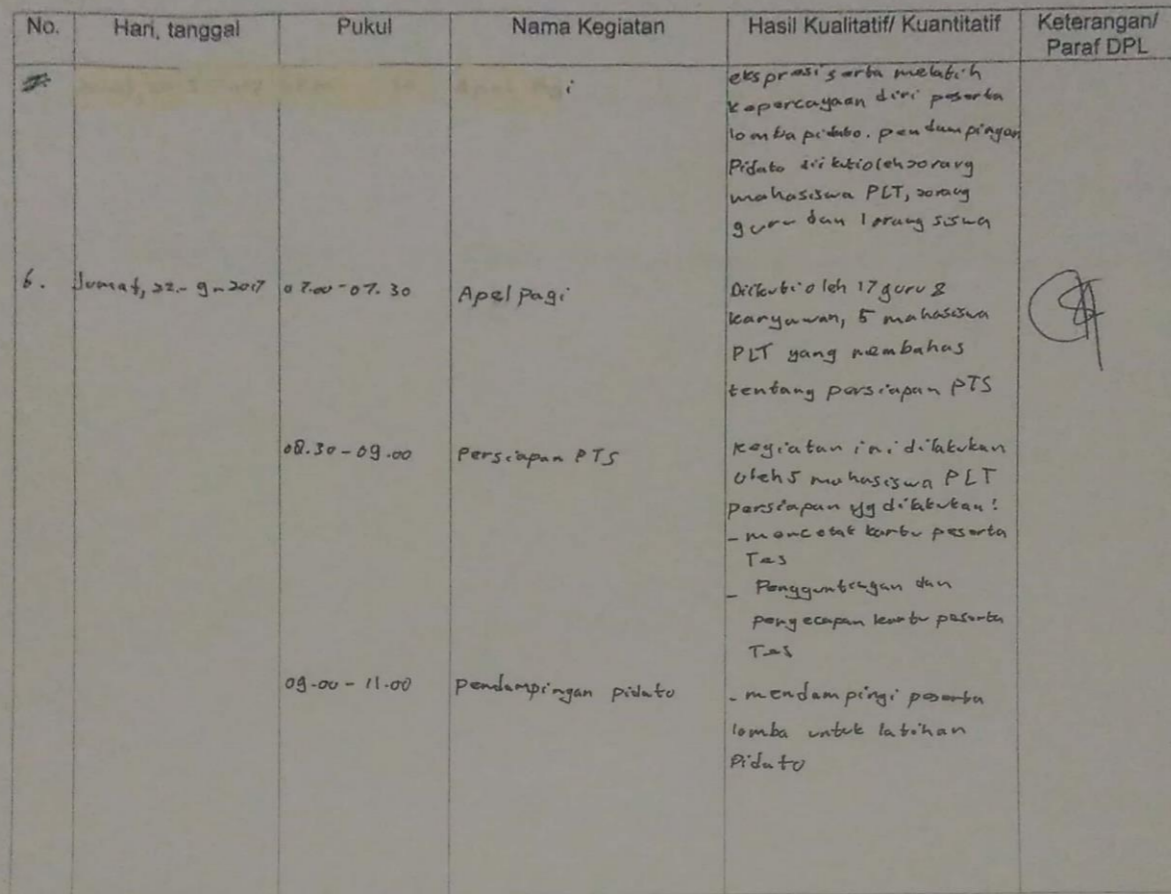 No. Hari, tanggal Pukul Nama Kegiatan Hasil Kualitatif/ Kuantitatif Keterangan/
Paraf DPL
ekspresi serta melatih
kepercayaan diri peserta
lomba pidato. pendampingan
Pidato diikuti oleh orang
mahasiswa PLT, orang
guru dan 1 orang siswa
6. Jumat, 22-9-2017 07.00-07.30 Apel pagi Diikuti oleh 17 guru &
karyawan, 5 mahasiswa
PLT yang membahas
tentang persiapan PTS
08.30-09.00 Persiapan PTS kegiatan ini dilakukan
oleh 5 mahasiswa PLT
persiapan yg dilakukan:
- mencetak kartu peserta
Tes
- Pengguntingan dan
pengecapan kartu peserta
Tes
09.00-11.00 pendampingan pidato - mendampingi peserta
lomba untuk latihan
Pidato